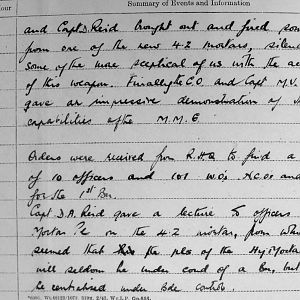 Summary of Events and Information
Hour
and Capt. D. Reid brought out and fired som
from one of the new 4.2 mortars, silen
some of the more sceptical of us with the ac
of this weapon. Finally the C.O and Capt M.V.
gave an impressive demonstration of
capabilities of the M.M.G
Orders were received from R.H.Q to find a
of 10 officers and 101 W.O's. N.C.Os and
for the 1st Bn.
Capt D.A. Reid gave a lecture to officers
Mortar Pl on the 4.2 mortar, from which
seemed that the pls of the Hy Mortar
will seldom be under comd of a Bn, but
be centralised under Bde control.